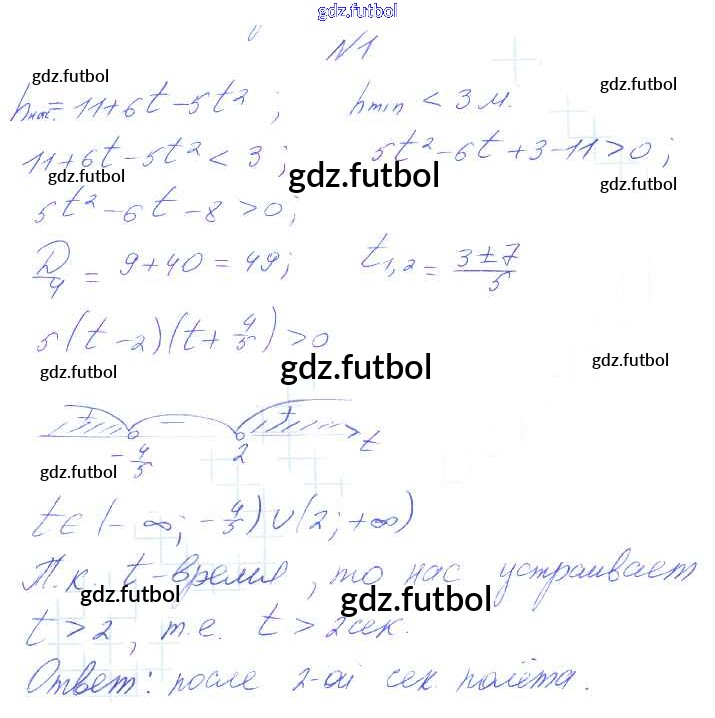 gdz.futbol
N1
gdz.futbol gdz.futbol
h = 11+6t-5t² ; hmin < 3 м.
11+6t-5t² < 3 ; 5t²-6t+3-11>0 ;
gdz.futbol gdz.futbol gdz.futbol
5t²-6t-8>0;
D/4 = 9+40=49; t1,2 = (3±7)/5
5(t-2)(t+4/5)>0
gdz.futbol gdz.futbol gdz.futbol
+ - +
-4/5 2 t
gdz.futbol
t∈(-∞; -4/5)∪(2; +∞)
Т.к. t-время, то нас устраивает
gdz.futbol gdz.futbol
t>2, т.е. t>2сек.
Ответ: после 2-ой сек. полёта.